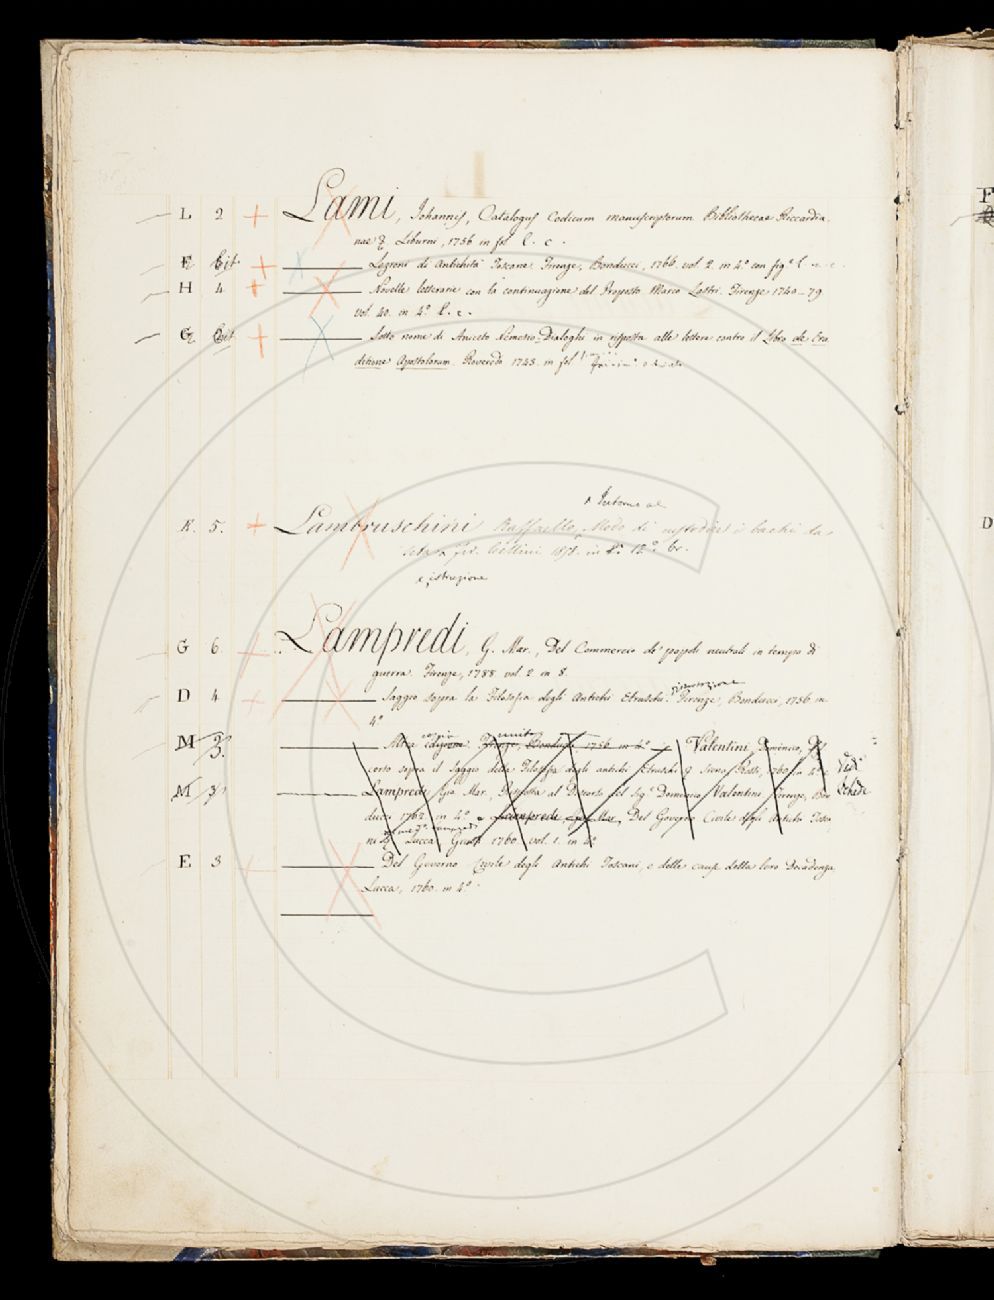 L 2 Lami, Iohannis, Catalogus Codicum manuscriptorum Bibliothecae Riccardia-
nae &. Liburni, 1756 in fol. l. c.
F Bis ——— Lezioni di Antichità Toscane Firenze, Bonducci, 1766. vol. 2. in 4.° con fig.e l.
H 4 ——— Novelle letterarie con la continuazione del Proposto Marco Lastri. Firenze 1740–79
vol. 40. in 4.° l. c.
G Bis ——— Sotto nome di Aniceto Nemesio Dialoghi in risposta alle lettere contro il Libro de Eru
ditione Apostolorum. Roveredo 1743. in fol
^ Intorno al
K. 5. Lambruschini Raffaello, Modo di custodire i bachi da
seta Cellini in 12.° br.
e istruzione
G 6 Lampredi, G. Mar., Del Commercio de' popoli neutrali in tempo di
guerra. Firenze, 1788 vol. 2 in 8.
D 4 ——— Saggio sopra la Filosofia degli Antichi Etruschi. Firenze, Bonducci, 1756 in
4.°
M 2 3. ——— Altra edizione. Firenze, Bonducci 1756 in 4.° Valentini, Domenico, Dis
corso sopra il Saggio della Filosofia degli antichi Etruschi &. Siena, Rossi, 1760 in 4.°
Vedi
M 3 ——— Lampredi Gio. Mar., Risposta al Discorso del Sig.r Domenico Valentini Firenze, Bon
Schede
ducci 1762 in 4.° e Lampredi Gio. Mar. Del Governo Civile degli Antichi Tosca
ni &. Lucca, Giusti 1760 vol. 1. in 4.°
E 3 ——— Del Governo Civile degli Antichi Toscani, e delle cause della loro Decadenza
Lucca, 1760. in 4.°
F
D